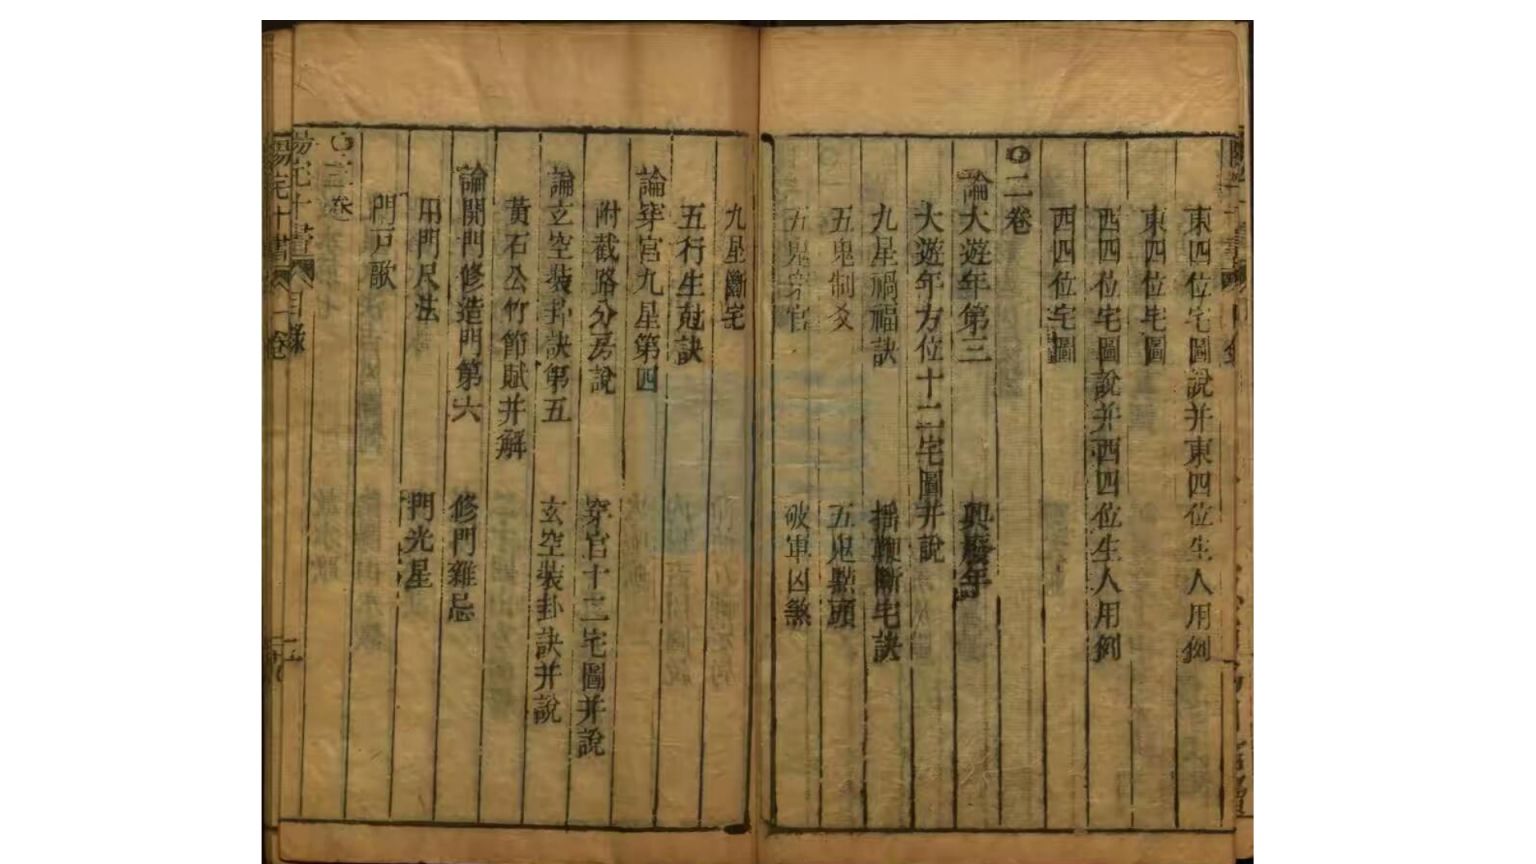 東四位宅圖說并東四位生人用例
東四位宅圖
西四位宅圖說并西四位生人用例
西四位宅圖
二卷
論大遊年第三 興廢年
大遊年方位十二宅圖并說
九星禍福訣 搖鞭斷宅訣
五鬼制爻 五鬼㸃頭
五鬼穿官 破軍凶煞
九星斷宅
五行生尅訣
論穿宮九星第四
附截路分房說 穿宮十二宅圖并說
論玄空裝卦訣第五 玄空裝卦訣并說
黃石公竹節賦并解
論開門修造門第六 修門雜忌
用門尺法 門光星
門戸歌
三卷
陽宅十書 目錄
陽宅十書 一卷